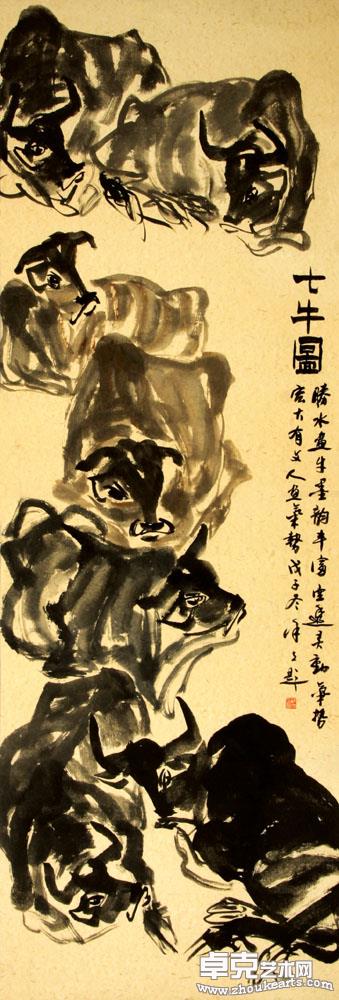 七牛圖
勝水画牛墨韵丰富空透灵動氣势
宏大有文人画氣势戊子冬题
卓克艺术网
www.zhoukearts.com